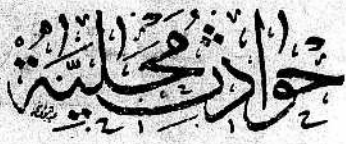 حَوَادِثُ مَحَلِّيَّةٌ